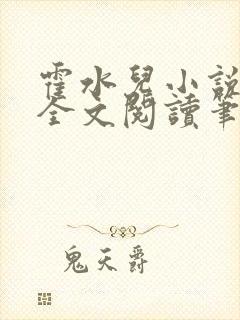 霍水兒小說
全文閱讀筆
鬼天爵